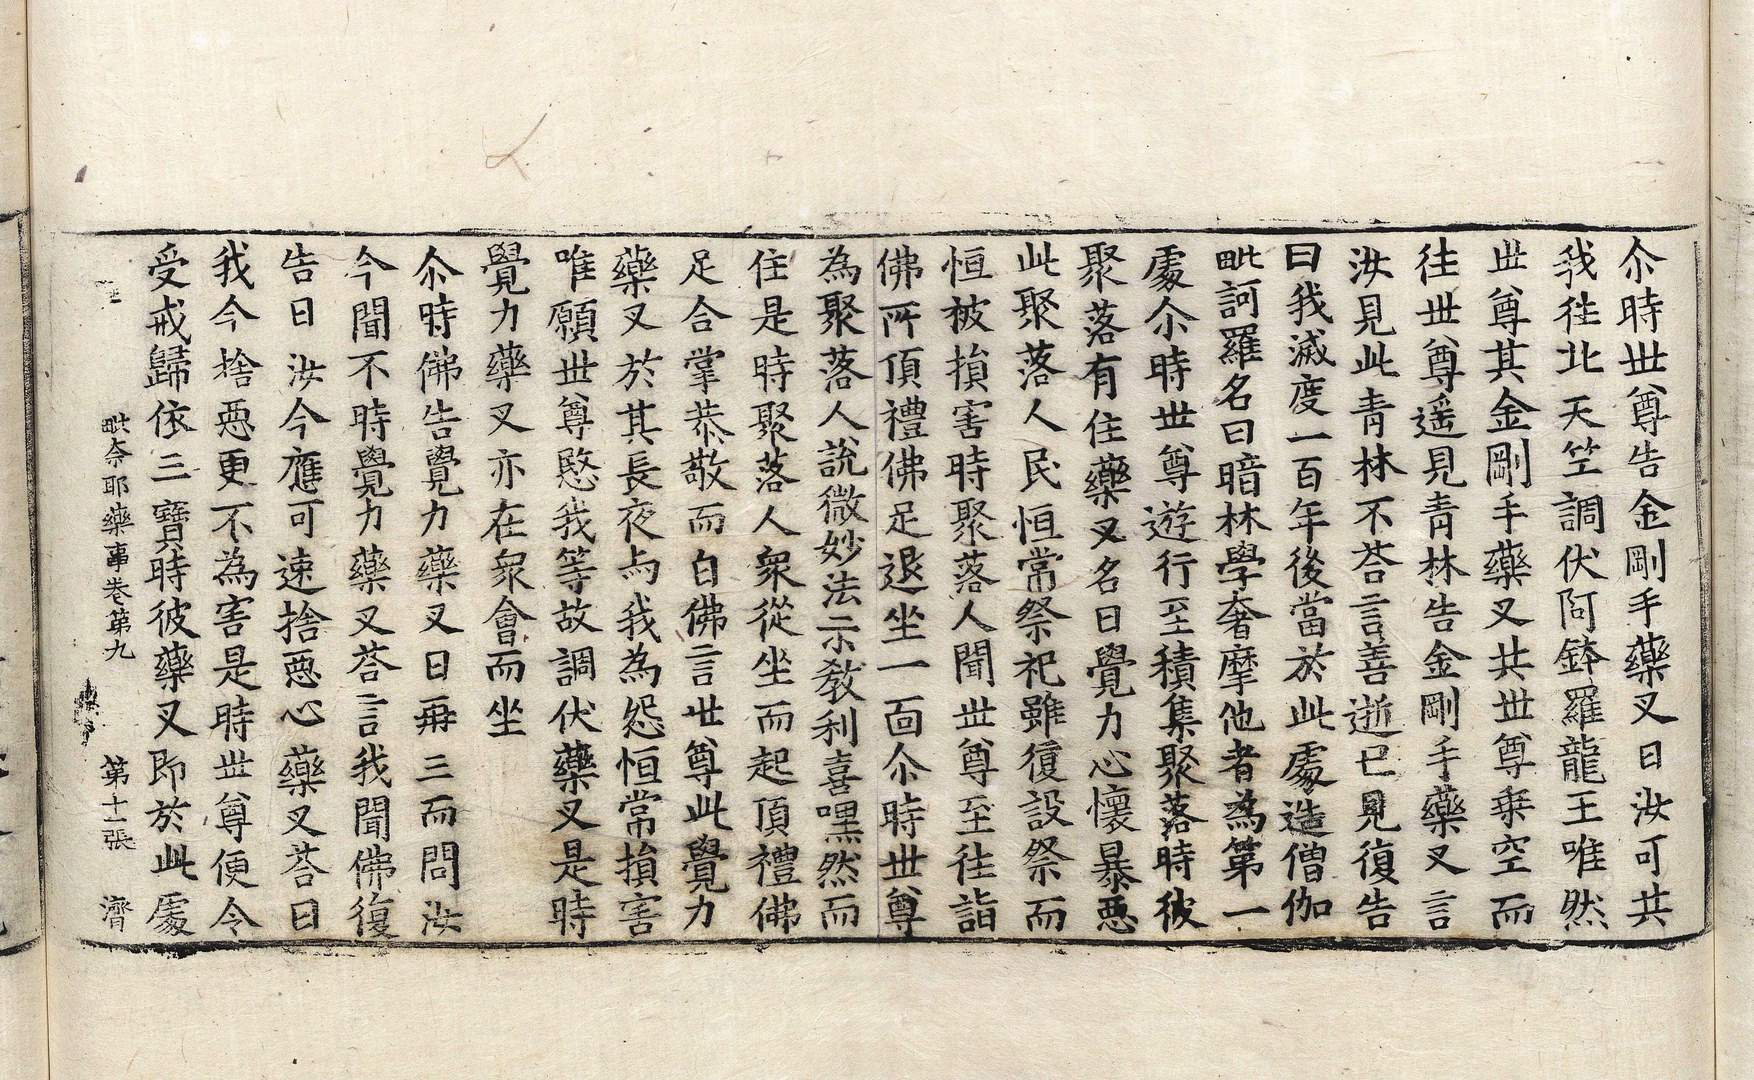 尒時世尊告金剛手藥叉曰汝可共
我往北天竺調伏阿鉢羅龍王唯然
世尊其金剛手藥叉共世尊乘空而
往世尊遥見青林告金剛手藥叉言
汝見此青林不荅言善逝已見復告
曰我滅度一百年後當於此處造僧伽
毗訶羅名曰暗林學奢摩他者為第一
處尒時世尊遊行至積集聚落時彼
聚落有住藥叉名曰覺力心懷暴惡
此聚落人民恒常祭祀雖復設祭而
恒被損害時聚落人聞世尊至往詣
佛所頂禮佛足退坐一面尒時世尊
為聚落人說微妙法示教利喜嘿然而
住是時聚落人衆從坐而起頂禮佛
足合掌恭敬而白佛言世尊此覺力
藥叉於其長夜与我為怨恒常損害
唯願世尊愍我等故調伏藥叉是時
覺力藥叉亦在衆會而坐
尒時佛告覺力藥叉曰再三而問汝
今聞不時覺力藥叉荅言我聞佛復
告曰汝今應可速捨惡心藥叉荅曰
我今捨惡更不為害是時世尊便令
受戒歸依三寶時彼藥叉即於此處
毗奈耶藥事卷第九 第十一張 濟